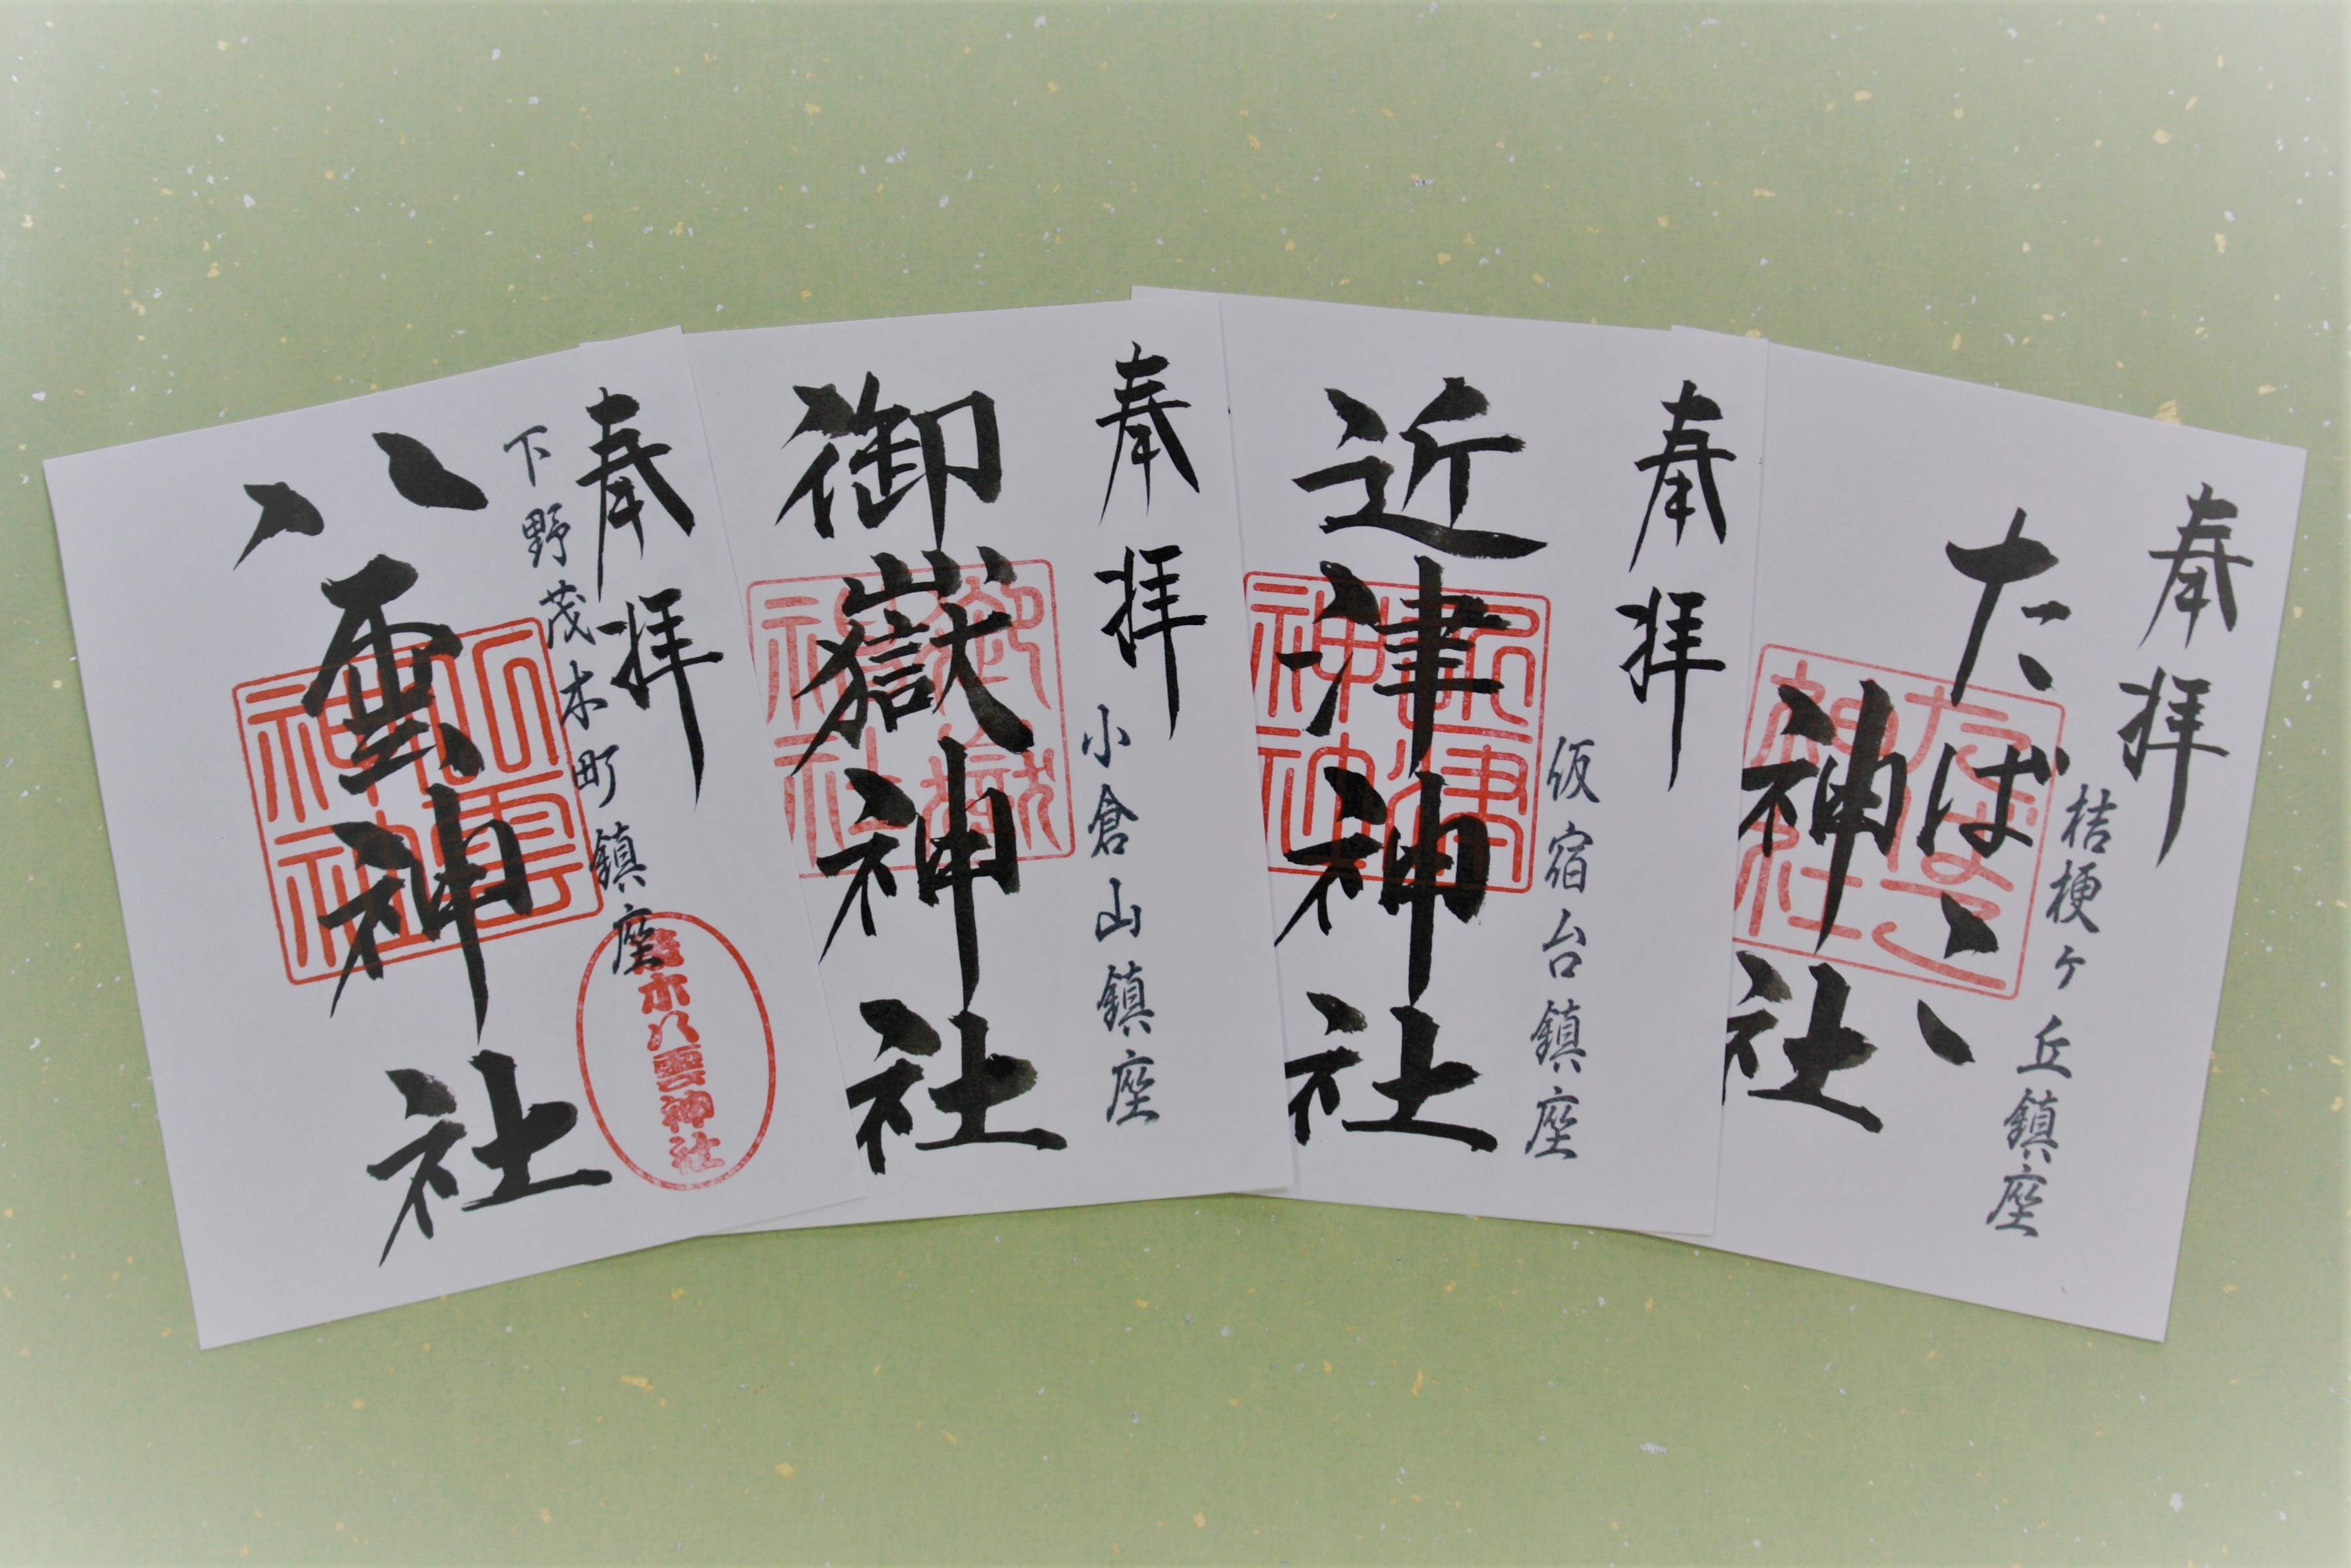 奉拝
たばこ
神社
桔梗ヶ丘鎮座
たばこ
神社
奉拝
近津神社
仮宿台鎮座
近津
神社
奉拝
御嶽神社
小倉山鎮座
御嶽
神社
奉拝
下野茂木町鎮座
八雲神社
八雲
神社
茂木八雲神社